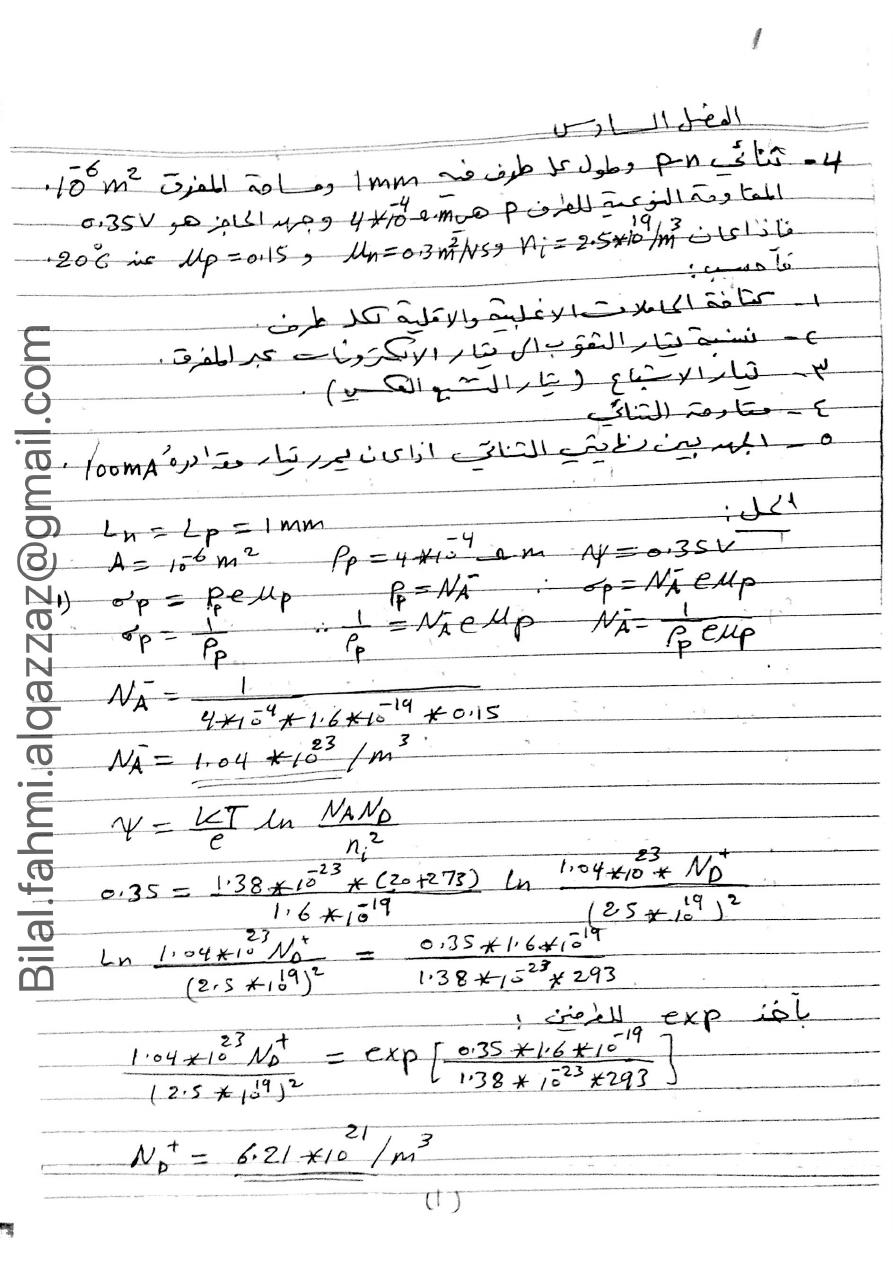 1
الفصل السادس
4- ثنائي p-n وطول كل طرف فيه 1mm ومساحة المفرق 10^-6 m^2.
المقاومة النوعية للطرف p هي 4*10^-4 Ω.m وجهد الحاجز هو 0.35V
فاذا كان n_i = 2.5*10^19/m^3 و μn=0.3m^2/Vs و μp=0.15 عند 20°C.
فأحسب:
١- كثافة الحاملات الاغلبية والاقلية لكل طرف.
٢- نسبة تيار الثقوب الى تيار الالكترونات عبر المفرق.
٣- تيار الاشباع (تيار التشبع العكسي).
٤- مقاومة الثنائي
٥- الجهد بين نهايتي الثنائي اذا كان يمرر تيار مقداره 100mA.
الحل:
Ln = Lp = 1mm
A = 10^-6 m^2 ρp = 4*10^-4 Ω m Δψ = 0.35V
1) σp = Pp e μp Pp = NA^- ∴ σp = NA^- e μp
σp = 1/ρp ∴ 1/ρp = NA^- e μp NA^- = 1/(ρp e μp)
NA^- = 1/(4*10^-4 * 1.6*10^-19 * 0.15)
NA^- = 1.04 *10^23 /m^3
ψ = KT/e ln NA ND/ni^2
0.35 = 1.38*10^-23 * (20+273)/1.6*10^-19 Ln 1.04*10^23 * ND^+/(2.5*10^19)^2
Ln 1.04*10^23 ND^+/(2.5*10^19)^2 = 0.35*1.6*10^-19/1.38*10^-23*293
بأخذ exp للطرفين:
1.04*10^23 ND^+/(2.5*10^19)^2 = exp[0.35*1.6*10^-19/1.38*10^-23*293]
ND^+ = 6.21*10^21 /m^3
(1)
Bilal.fahmi.alqazzaz@gmail.com